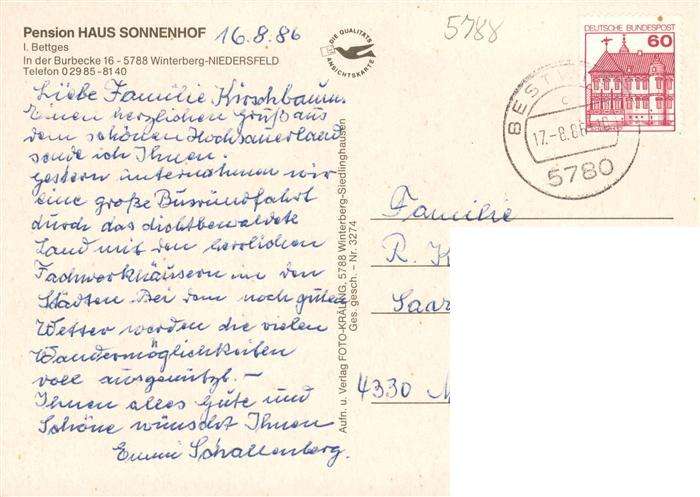 Pension HAUS SONNENHOF
I. Bettges
In der Burbecke 16 - 5788 Winterberg-NIEDERSFELD
Telefon 0 29 85 - 81 40
16.8.86
DIE QUALITÄTS
ANSICHTSKARTE
5788
DEUTSCHE BUNDESPOST
60
BESTWIG
17.-8.86
5780
Liebe Familie Kirschbaum.
Einen herzlichen Gruß aus
dem schönen Hochsauerland
sende ich Ihnen.
Gestern unternahmen wir
eine große Busrundfahrt
durch das dichtbewaldete
Land mit den herrlichen
Fachwerkhäusern in den
Städten. Bei dem noch guten
Wetter werden die vielen
Wandermöglichkeiten
voll ausgenützt. –
Ihnen alles Gute und
Schöne wünscht Ihnen
Emmi Schallenberg.
Aufn. u. Verlag FOTO-KRÄLING, 5788 Winterberg-Siedlinghausen
Ges. gesch. – Nr. 3274
Familie
R. K
Saar
4330 M